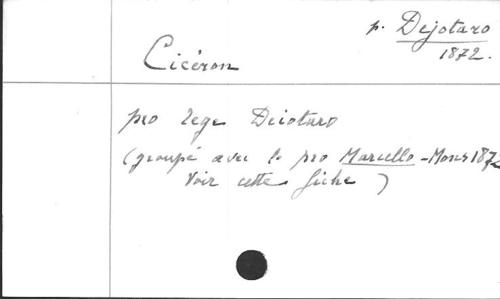 p. Dejotaro
1872.
Cicéron
pro rege Deiotaro
(groupé avec le pro Marcello - Mons 1872
Voir cette fiche)